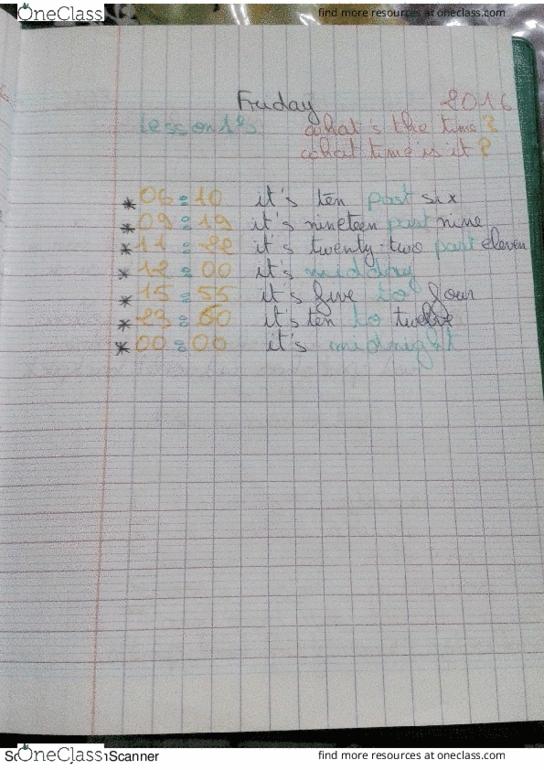 OneClass find more resources at oneclass.com
Friday 2016
lesson 1: what's the time?
what time is it?
* 06:10 it's ten past six
* 09:19 it's nineteen past nine
* 11:22 it's twenty-two past eleven
* 12:00 it's midday
* 15:55 it's five to four
* 23:50 it's ten to twelve
* 00:00 it's midnight
OneClass Scanner find more resources at oneclass.com